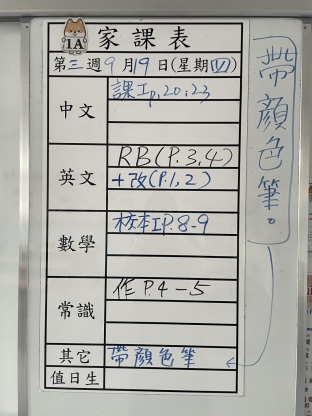 1A 家課表
第三週9月19日(星期四)
中文
課工p.20,23
英文
RB(P.3,4)
+改(P.1,2)
數學
校本工P.8-9
常識
作P.4-5
其它
帶顏色筆
值日生
帶顏色筆。